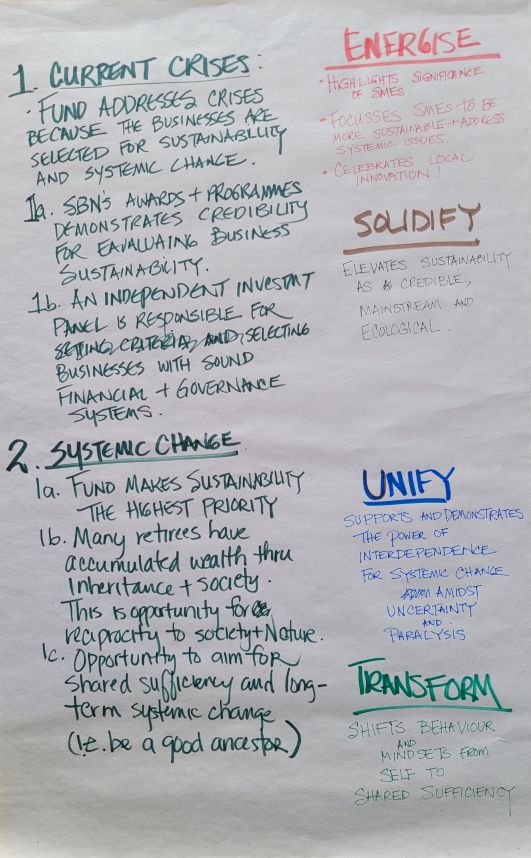 1. CURRENT CRISES:
• FUND ADDRESSES CRISES
BECAUSE THE BUSINESSES ARE
SELECTED FOR SUSTAINABILITY
AND SYSTEMIC CHANGE.
1a. SBN'S AWARDS + PROGRAMMES
DEMONSTRATES CREDIBILITY
FOR EAVALUAING BUSINESS
SUSTAINABILITY.
1b. AN INDEPENDENT INVESTMT
PANEL IS RESPONSIBLE FOR
SETTING CRITERIA AND SELECTING
BUSINESSES WITH SOUND
FINANCIAL + GOVERNANCE
SYSTEMS.
2. SYSTEMIC CHANGE
1a. FUND MAKES SUSTAINABILITY
THE HIGHEST PRIORITY
1b. Many retirees have
accumulated wealth thru
inheritance + society.
This is opportunity for
reciprocity to society + Nature.
1c. Opportunity to aim for
shared sufficiency and long-
term systemic change
(i.e. be a good ancestor)
ENERGISE
• HIGHLIGHTS SIGNIFICANCE
OF SMES
• FOCUSSES SMES TO BE
MORE SUSTAINABLE + ADDRESS
SYSTEMIC ISSUES.
• CELEBRATES LOCAL
INNOVATION!
SOLIDIFY
ELEVATES SUSTAINABILITY
AS CREDIBLE,
MAINSTREAM AND
ECOLOGICAL.
UNIFY
SUPPORTS AND DEMONSTRATES
THE POWER OF
INTERDEPENDENCE
FOR SYSTEMIC CHANGE
AMIDST
UNCERTAINTY
AND
PARALYSIS
TRANSFORM
SHIFTS BEHAVIOUR
AND
MINDSETS FROM
SELF TO
SHARED SUFFICIENCY